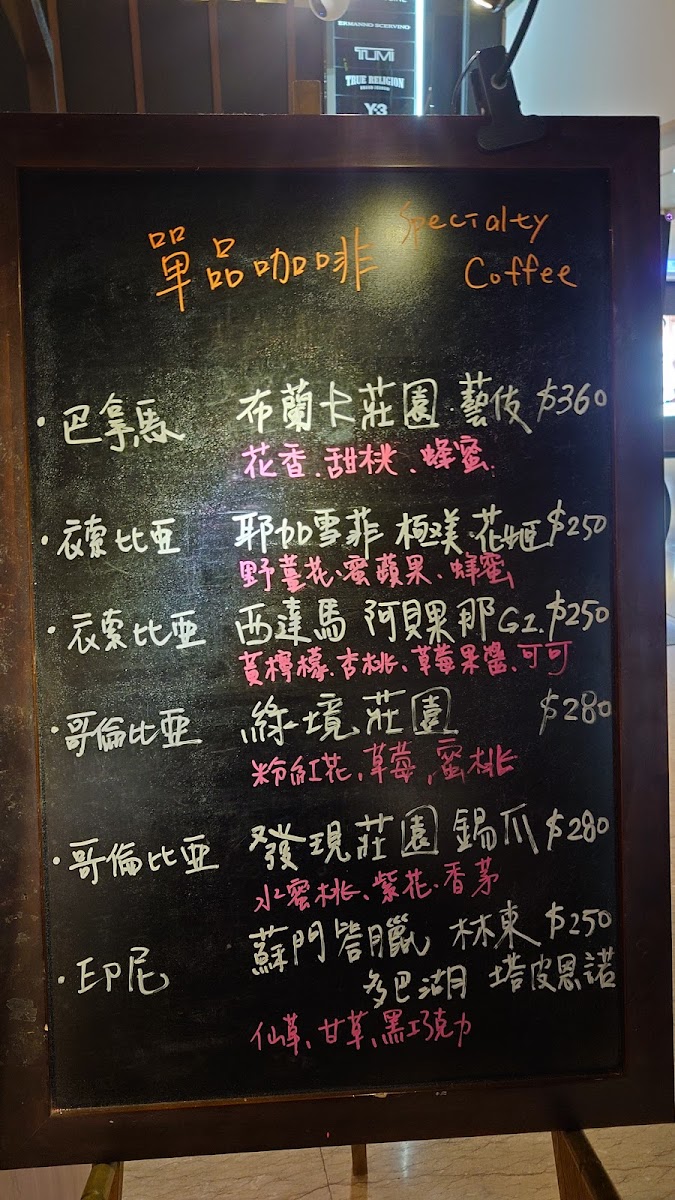 ERMANNO SCERVINO
TUMI
TRUE RELIGION
Y-3
單品咖啡 Specialty
Coffee
·巴拿馬 布蘭卡莊園 藝伎 $360
花香、甜桃、蜂蜜
·衣索比亞 耶加雪菲 極美·花姬 $250
野薑花、蜜蘋果、蜂蜜
·衣索比亞 西達馬 阿貝果那 G1. $250
黃檸檬、杏桃、草莓果醬、可可
·哥倫比亞 綠境莊園 $280
粉紅花、草莓、蜜桃
·哥倫比亞 發現莊園 錫爪 $280
水蜜桃、紫花、香茅
·印尼 蘇門答臘 林東 $250
多巴湖 塔皮恩諾
仙草、甘草、黑巧克力